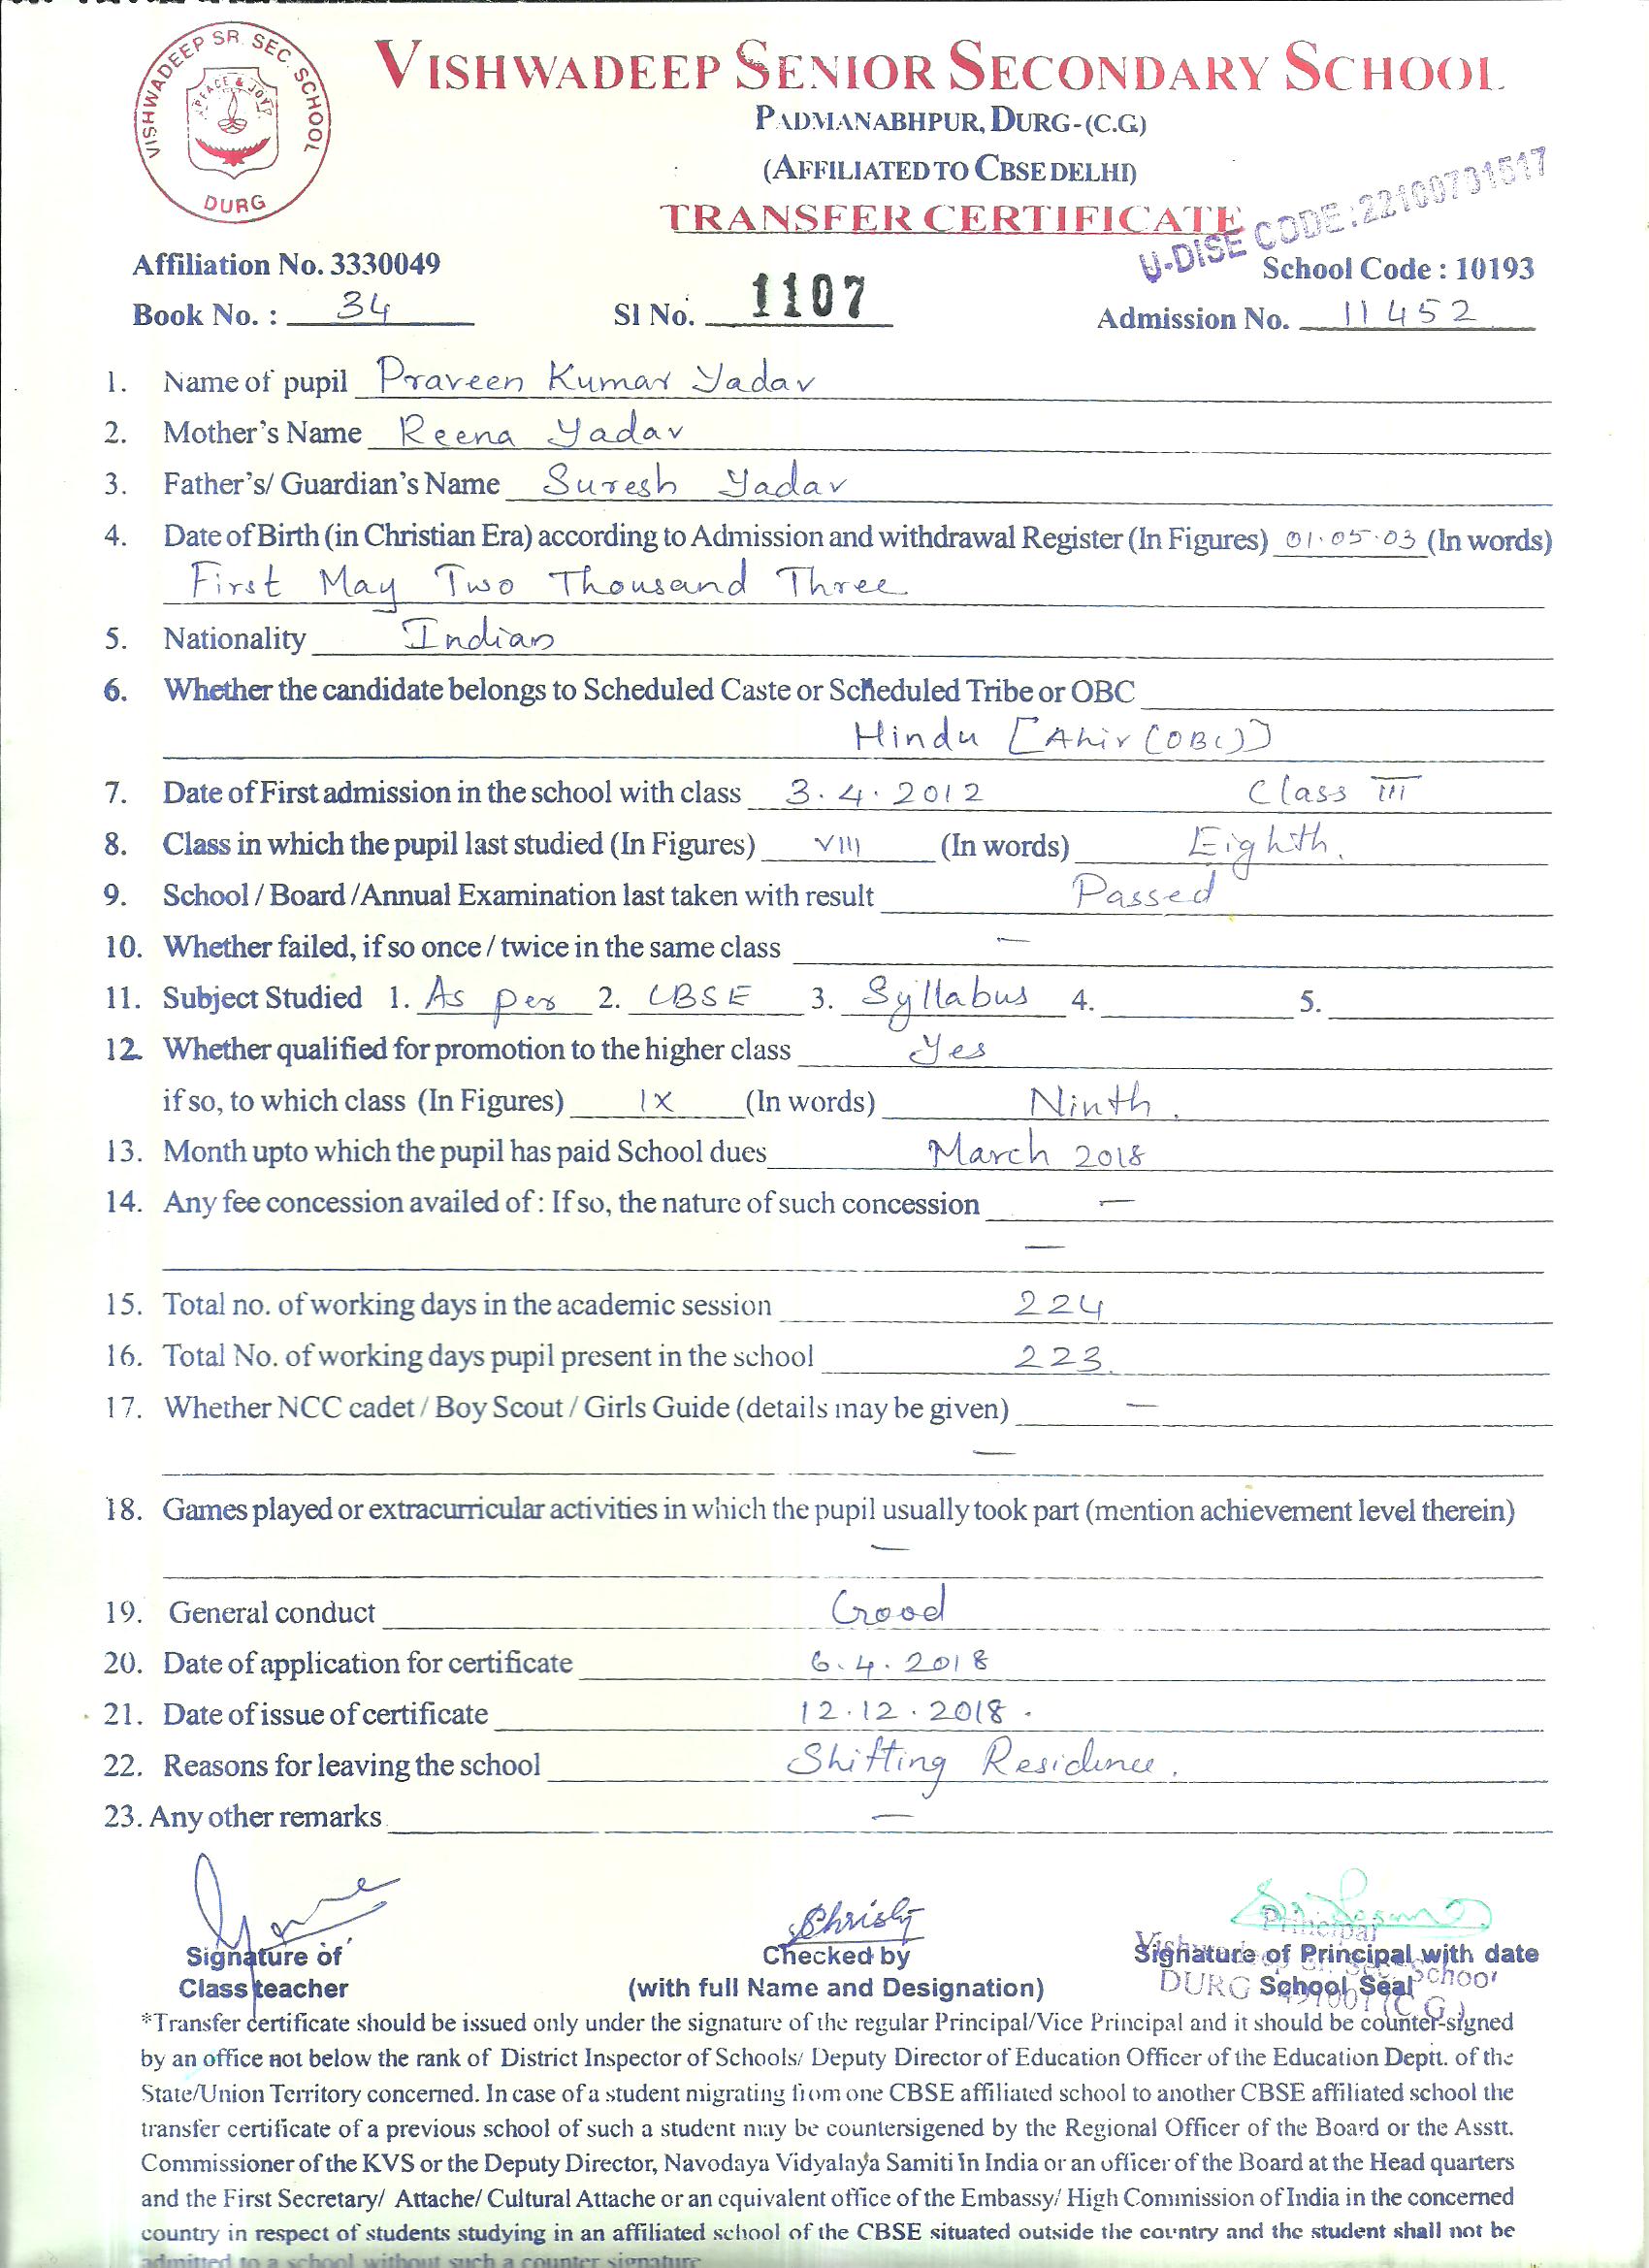 VISHWADEEP SR. SEC. SCHOOL
PEACE & JOY
DURG
VISHWADEEP SENIOR SECONDARY SCHOOL
PADMANABHPUR, DURG-(C.G.)
(AFFILIATED TO CBSE DELHI)
TRANSFER CERTIFICATE
U-DISE CODE:22100731517
Affiliation No. 3330049 School Code : 10193
Book No. : 34 Sl No. 1107 Admission No. 11452
1. Name of pupil Praveen Kumar Yadav
2. Mother's Name Reena Yadav
3. Father's/ Guardian's Name Suresh Yadav
4. Date of Birth (in Christian Era) according to Admission and withdrawal Register (In Figures) 01.05.03 (In words)
First May Two Thousand Three
5. Nationality Indian
6. Whether the candidate belongs to Scheduled Caste or Scheduled Tribe or OBC
Hindu [Ahir (OBC)]
7. Date of First admission in the school with class 3.4.2012 Class III
8. Class in which the pupil last studied (In Figures) VIII (In words) Eighth.
9. School / Board /Annual Examination last taken with result Passed
10. Whether failed, if so once / twice in the same class —
11. Subject Studied 1. As per 2. CBSE 3. Syllabus 4. 5.
12. Whether qualified for promotion to the higher class Yes
if so, to which class (In Figures) IX (In words) Ninth.
13. Month upto which the pupil has paid School dues March 2018
14. Any fee concession availed of : If so, the nature of such concession —
—
15. Total no. of working days in the academic session 224
16. Total No. of working days pupil present in the school 223.
17. Whether NCC cadet / Boy Scout / Girls Guide (details may be given) —
—
18. Games played or extracurricular activities in which the pupil usually took part (mention achievement level therein)
—
19. General conduct Good
20. Date of application for certificate 6.4.2018
21. Date of issue of certificate 12.12.2018.
22. Reasons for leaving the school Shifting Residence.
23. Any other remarks —
Christy
Principal
Signature of Checked by Signature of Principal with date
Vishwadeep Sr. Sec. School
Class teacher (with full Name and Designation) School Seal
DURG 491001 (C.G.)
*Transfer certificate should be issued only under the signature of the regular Principal/Vice Principal and it should be counter-signed
by an office not below the rank of District Inspector of Schools/ Deputy Director of Education Officer of the Education Deptt. of the
State/Union Territory concerned. In case of a student migrating from one CBSE affiliated school to another CBSE affiliated school the
transfer certificate of a previous school of such a student may be countersigened by the Regional Officer of the Board or the Asstt.
Commissioner of the KVS or the Deputy Director, Navodaya Vidyalaya Samiti in India or an officer of the Board at the Head quarters
and the First Secretary/ Attache/ Cultural Attache or an equivalent office of the Embassy/ High Commission of India in the concerned
country in respect of students studying in an affiliated school of the CBSE situated outside the country and the student shall not be
admitted to a school without such a counter signature